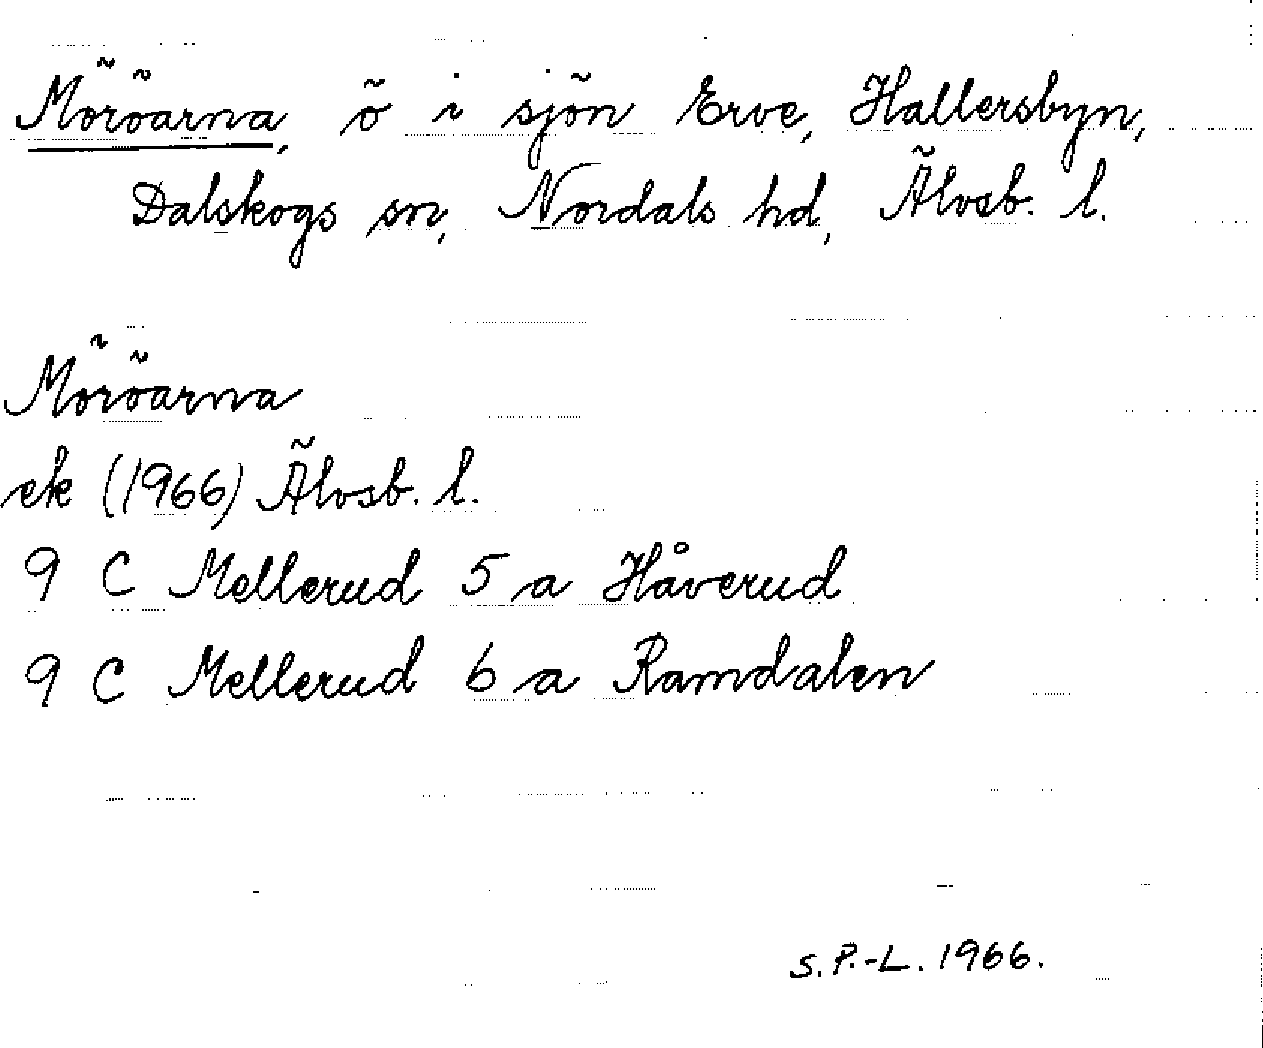 Möröarna, ö i sjön Erve, Hallersbyn,
Dalskogs sn, Nordals hd, Älvsb. l.
Möröarna
ek (1966) Älvsb. l.
9 C Mellerud 5 a Håverud
9 C Mellerud 6 a Ramdalen
S. P.-L. 1966.